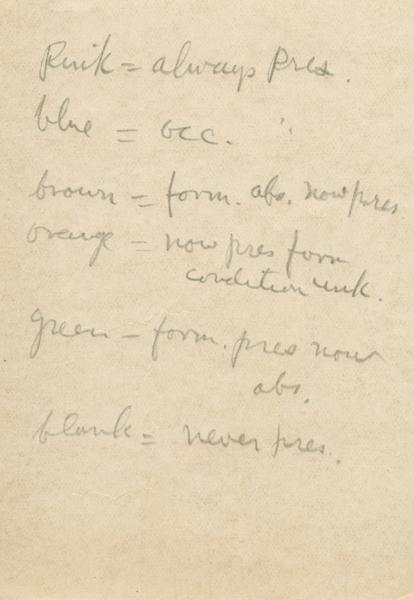 Pink = always Pres.
blue = occ. "
brown = form. abs. now pres
orange = now pres form
condition unk.
green = form. pres now
abs.
blank = never pres.